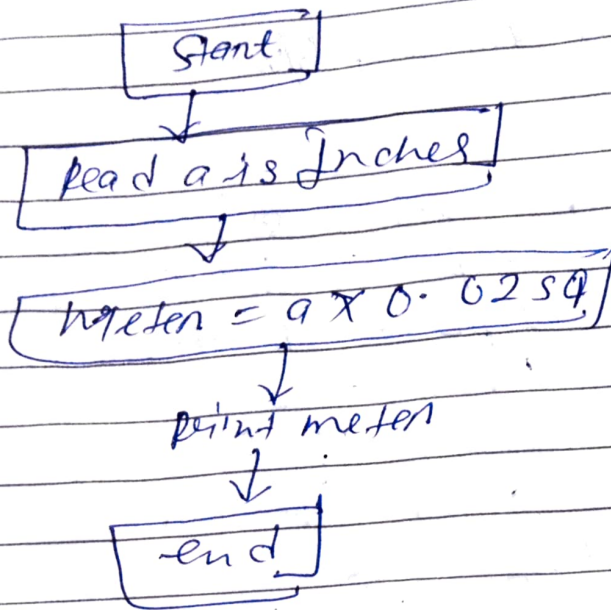 Start
Read a is Inches
meter = a x 0.0254
print meter
end